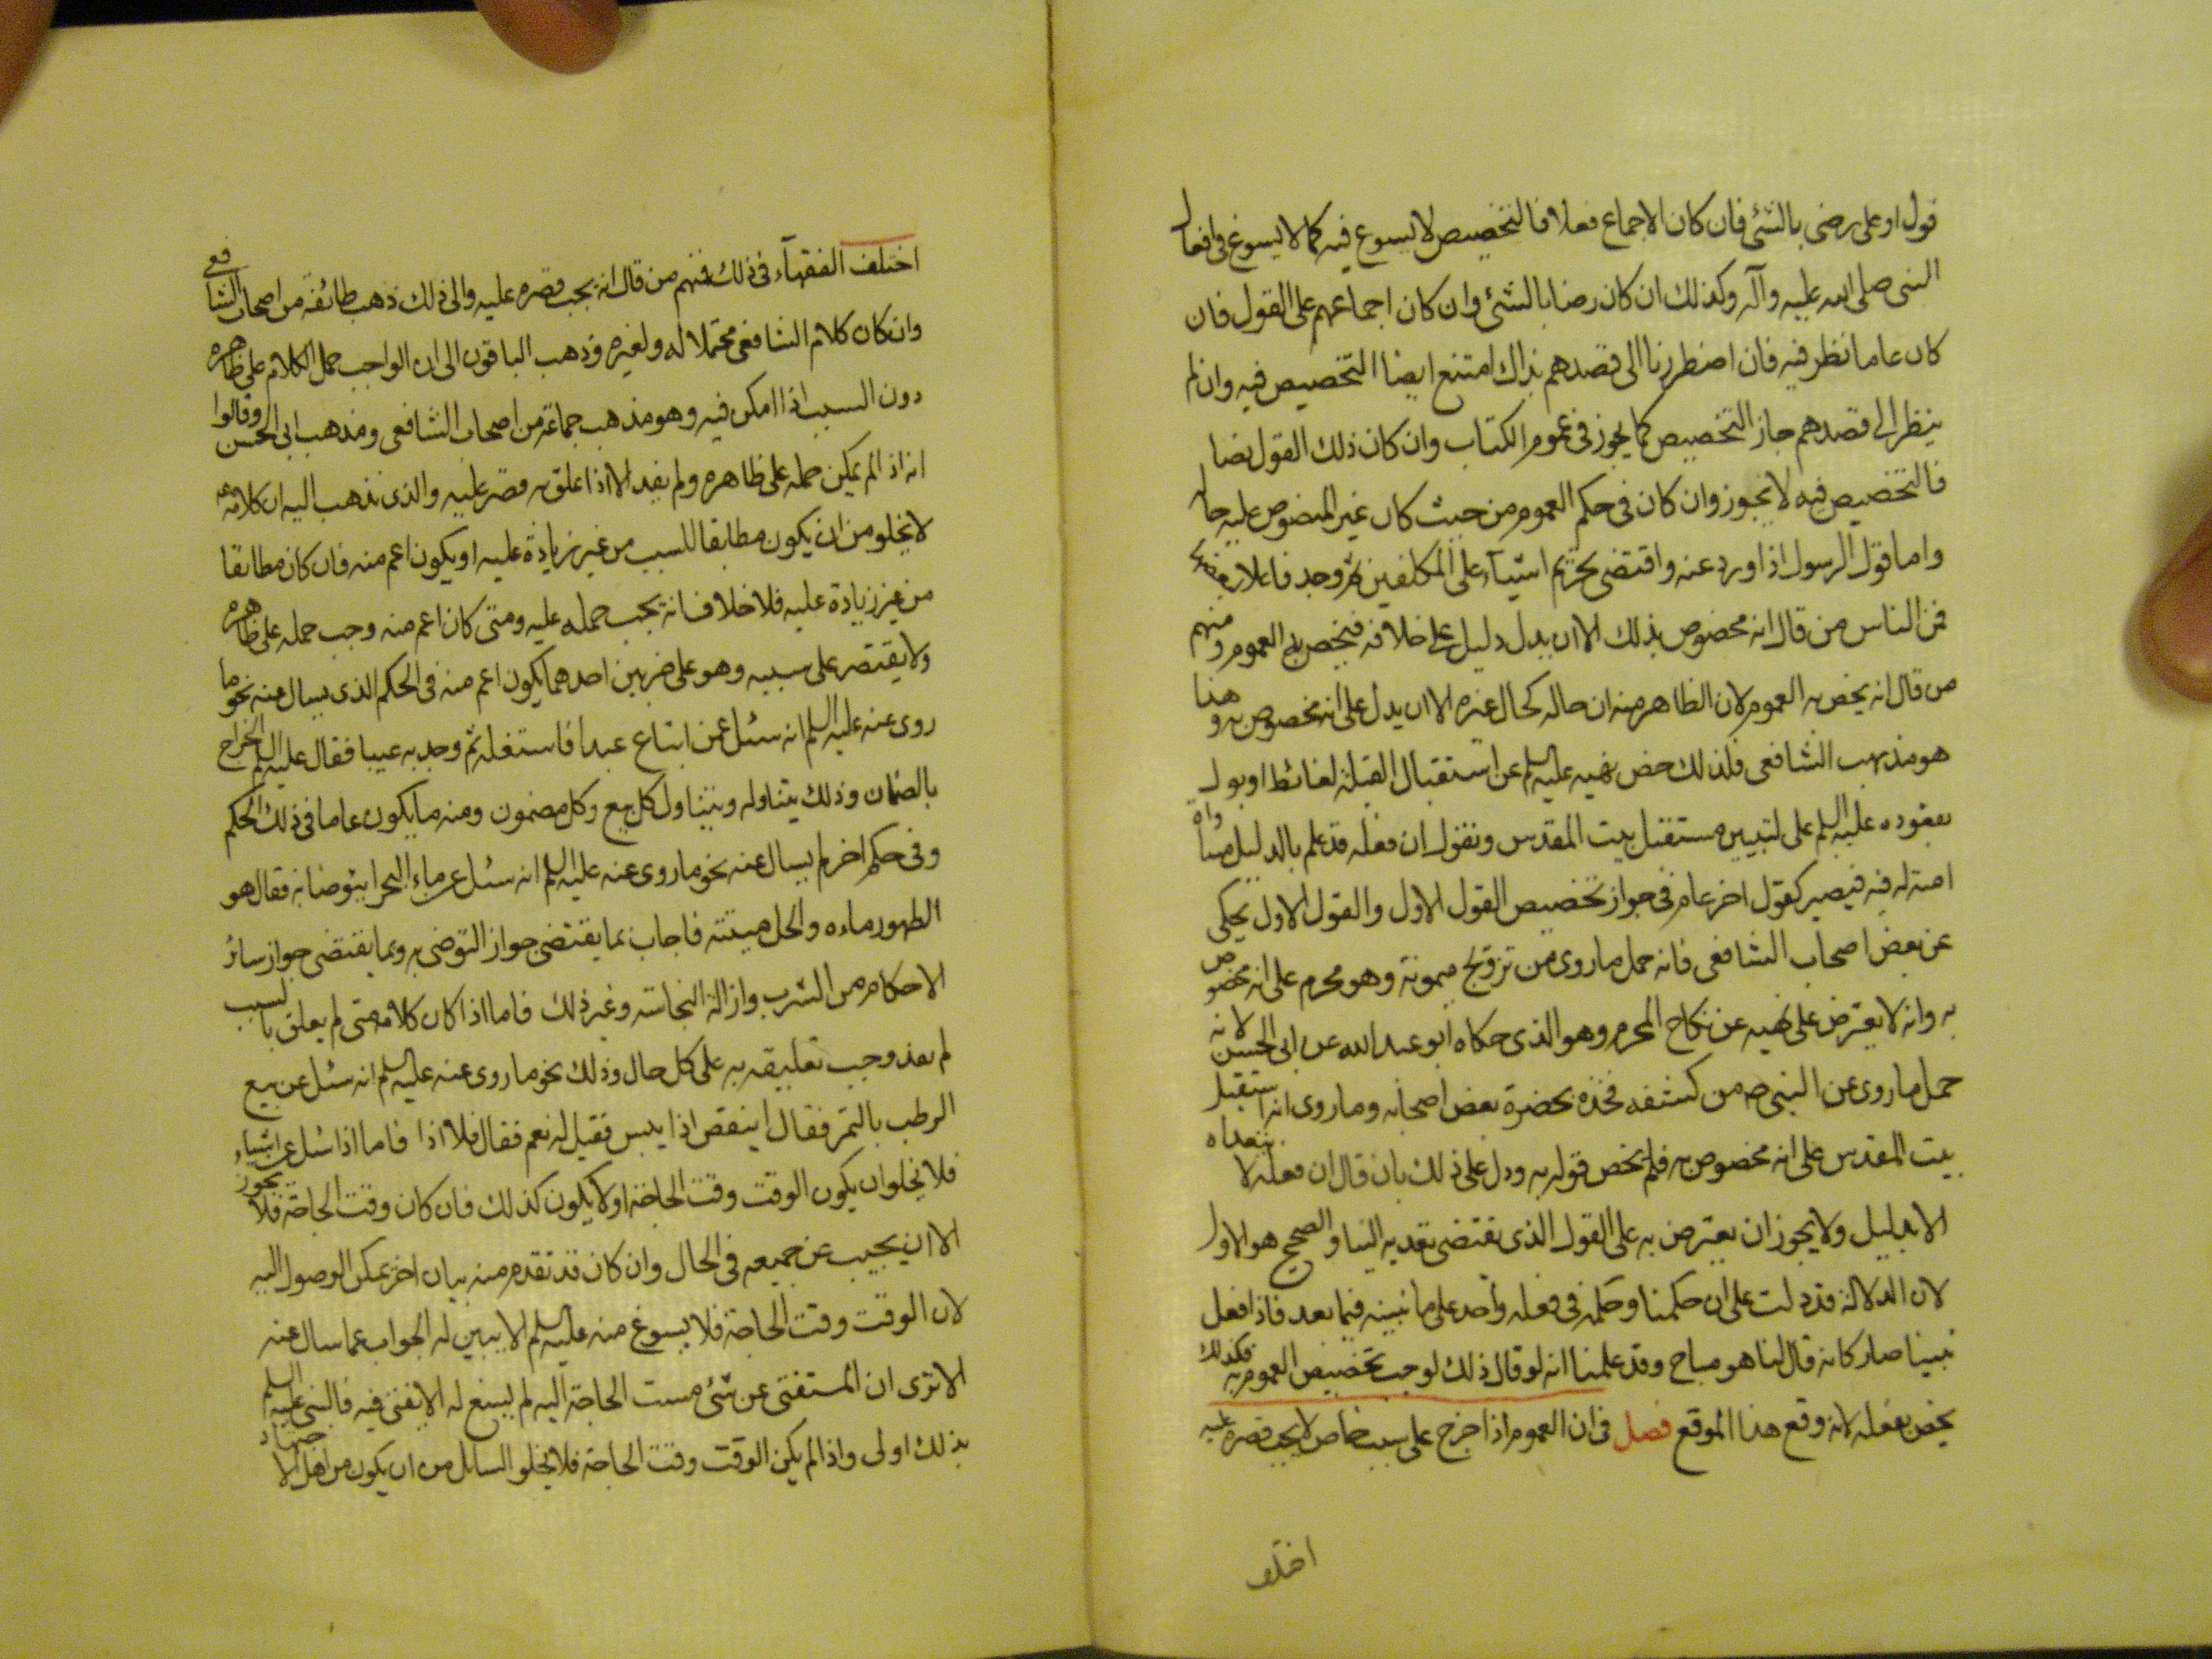 قول او على رضى بالشئ فان كان الاجماع فعلا فالتخصيص لا يسوغ فيه كما لا يسوغ فى افعال
النبى صلى الله عليه وآله وكذلك ان كان رضا بالشئ وان كان اجماعهم على القول فان
كان عاما نظر فيه فان اضطررنا الى قصدهم بذاك امتنع ايضا التخصيص فيه وان لم
ينظر الى قصدهم جاز التخصيص كما يجوز فى عموم الكتاب وان كان ذلك القول نصا
فالتخصيص فيه لا يجوز وان كان فى حكم العموم من حيث كان غير المنصوص عليه حاله
واما قول الرسول اذا ورد عنه واقتضى تحريم اشيآء على المكلفين ثم وجد فاعلا لبعضه
فمن الناس من قال انه مخصوص بذلك الا ان يدل دليل على خلافه فيخص به العموم ومنهم
من قال انه يخص به العموم لان الظاهر منه ان حاله كحال غيره الا ان يدل على انه مخصوص به وهذا
هو مذهب الشافعى فلذلك خص نهيه عليه السلم عن استقبال القبلة لغائط او بول
بقعوده عليه السلم على لبتين مستقبل بيت المقدس ونقول ان فعله قد علم بالدليل مساواة
امته له فيه فيصير كقول اخر عام فى جواز تخصيص القول الاول والقول الاول يحكى
عن بعض اصحاب الشافعى فانه حمل ما روى من تزويج ميمونة وهو محرم على انه مخصوص
به وانه لا يعترض على نهيه عن نكاح المحرم وهو الذى حكاه ابو عبد الله عن ابى الحسن لانه
حمل ما روى عن النبى ص من كشفه فخذه بحضرة بعض اصحابه وما روى انه استقبل
بيت المقدس على انه مخصوص به فلم يخص قوله به ودل على ذلك بان قال ان فعله لا يتعداه
الا بدليل ولا يجوز ان يعترض به على القول الذى يقتضى تعديه الينا والصحيح هو الاول
لان الدلالة قد دلت على ان حكمنا وحكمه فى فعله واحد على ما نبينه فيما بعد فاذا فعل
نبينا صار كانه قال لنا هو مباح وقد علمنا انه لو قال ذلك لوجب تخصيص العموم به فكذلك
يخص بفعله لانه وقع هذا الموقع فصل فى ان العموم اذا خرج على سبب خاص لا يجب قصره عليه
اختلف
اختلف الفقهآء فى ذلك فمنهم من قال انه يجب قصره عليه والى ذلك ذهب طائفة من اصحاب الشافعى
وان كان كلام الشافعى محتملا له ولغيره وذهب الباقون الى ان الواجب حمل الكلام على ظاهره
دون السبب اذا امكن فيه وهو مذهب جماعة من اصحاب الشافعى ومذهب ابى الحسن وقالوا
انه اذا لم يمكن حمله على ظاهره ولم يفد الا اذا علق به قصر عليه والذى نذهب اليه ان كلامه
لا يخلو من ان يكون مطابقا للسبب من غير زيادة عليه او يكون اعم منه فان كان مطابقا
من غير زيادة عليه فلا خلاف انه يجب حمله عليه ومتى كان اعم منه وجب حمله على ظاهره
ولا يقتصر على سببه وهو على ضربين احدهما يكون اعم منه فى الحكم الذى يسال عنه نحو ما
روى عنه عليه السلم انه سئل عمن ابتاع عبدا فاستغله ثم وجد به عيبا فقال عليه السلم الخراج
بالضمان وذلك يتناوله ويتناول كل بيع وكل مضمون ومنه ما يكون عاما فى ذلك الحكم
وفى حكم اخر لم يسال عنه نحو ما روى عنه عليه السلم انه سئل عن ماء البحر ايتوضا به فقال هو
الطهور ماءه والحل ميتته فاجاب بما يقتضى جواز التوضى به وبما يقتضى جواز سائر
الاحكام من الشرب وازالة النجاسة وغير ذلك فاما اذا كان كلامه متى لم يعلق بالسبب
لم يفد وجب تعليقه به على كل حال وذلك نحو ما روى عنه عليه السلم انه سئل عن بيع
الرطب بالتمر فقال اينقص اذا يبس فقيل له نعم فقال فلا اذا فاما اذا سئل عن اشياء
فلا يخلو ان يكون الوقت وقت الحاجة او لا يكون كذلك فان كان وقت الحاجة فلا يجوز
الا ان يجيب عن جميعه فى الحال وان كان قد تقدم منه بيان اخر يمكن الوصول اليه
لان الوقت وقت الحاجة فلا يسوغ منه عليه السلم الا يبين له الجواب عما سال عنه
الا ترى ان المستفتى عن شئ مست الحاجة اليه لم يسغ له الا يفتى فيه فالنبى عليه السلم
بذلك اولى واذا لم يكن الوقت وقت الحاجة فلا يخلو السائل من ان يكون من اهل الاجتهاد